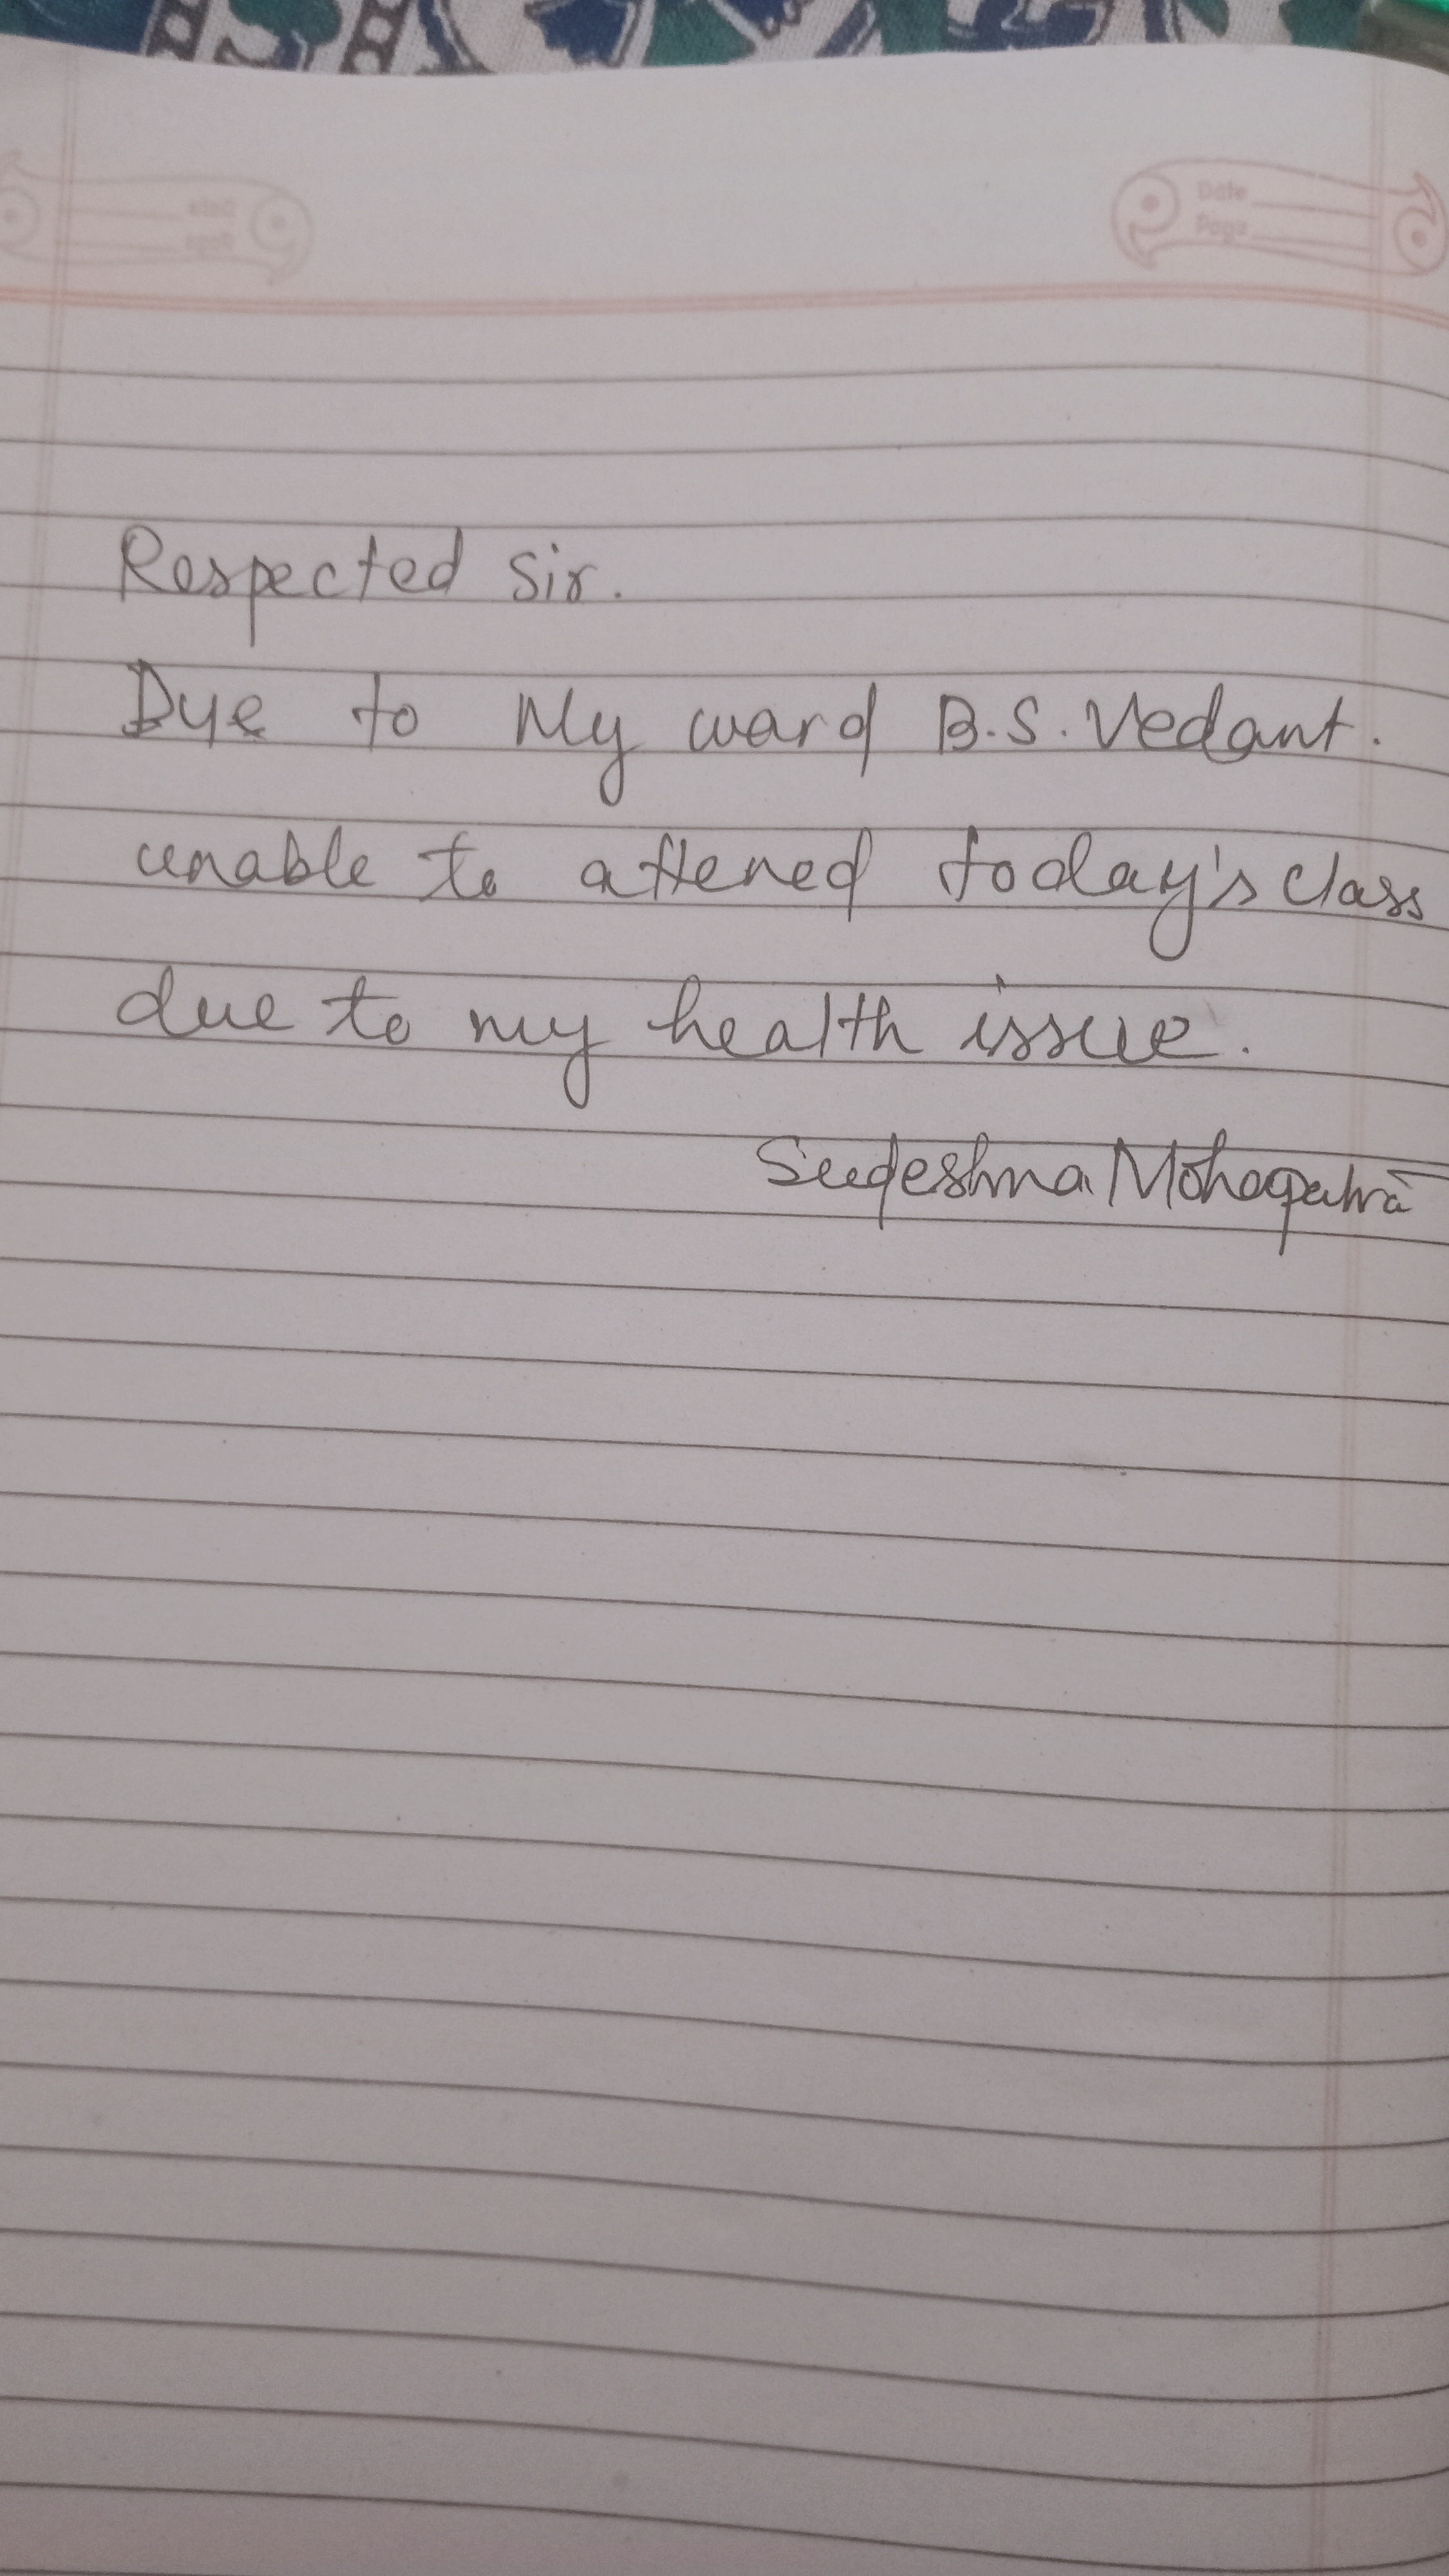 Date
Page
Respected Sir.
Due to My ward B.S. Vedant.
unable to attened today's class
due to my health issue.
Sudeshna Mohapatra